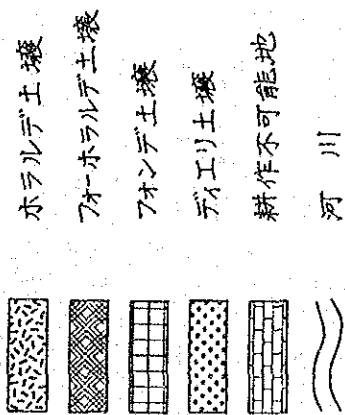 ホラルデ土壌
フォーホラルデ土壌
フォンデ土壌
ディエリ土壌
耕作不可能地
河川